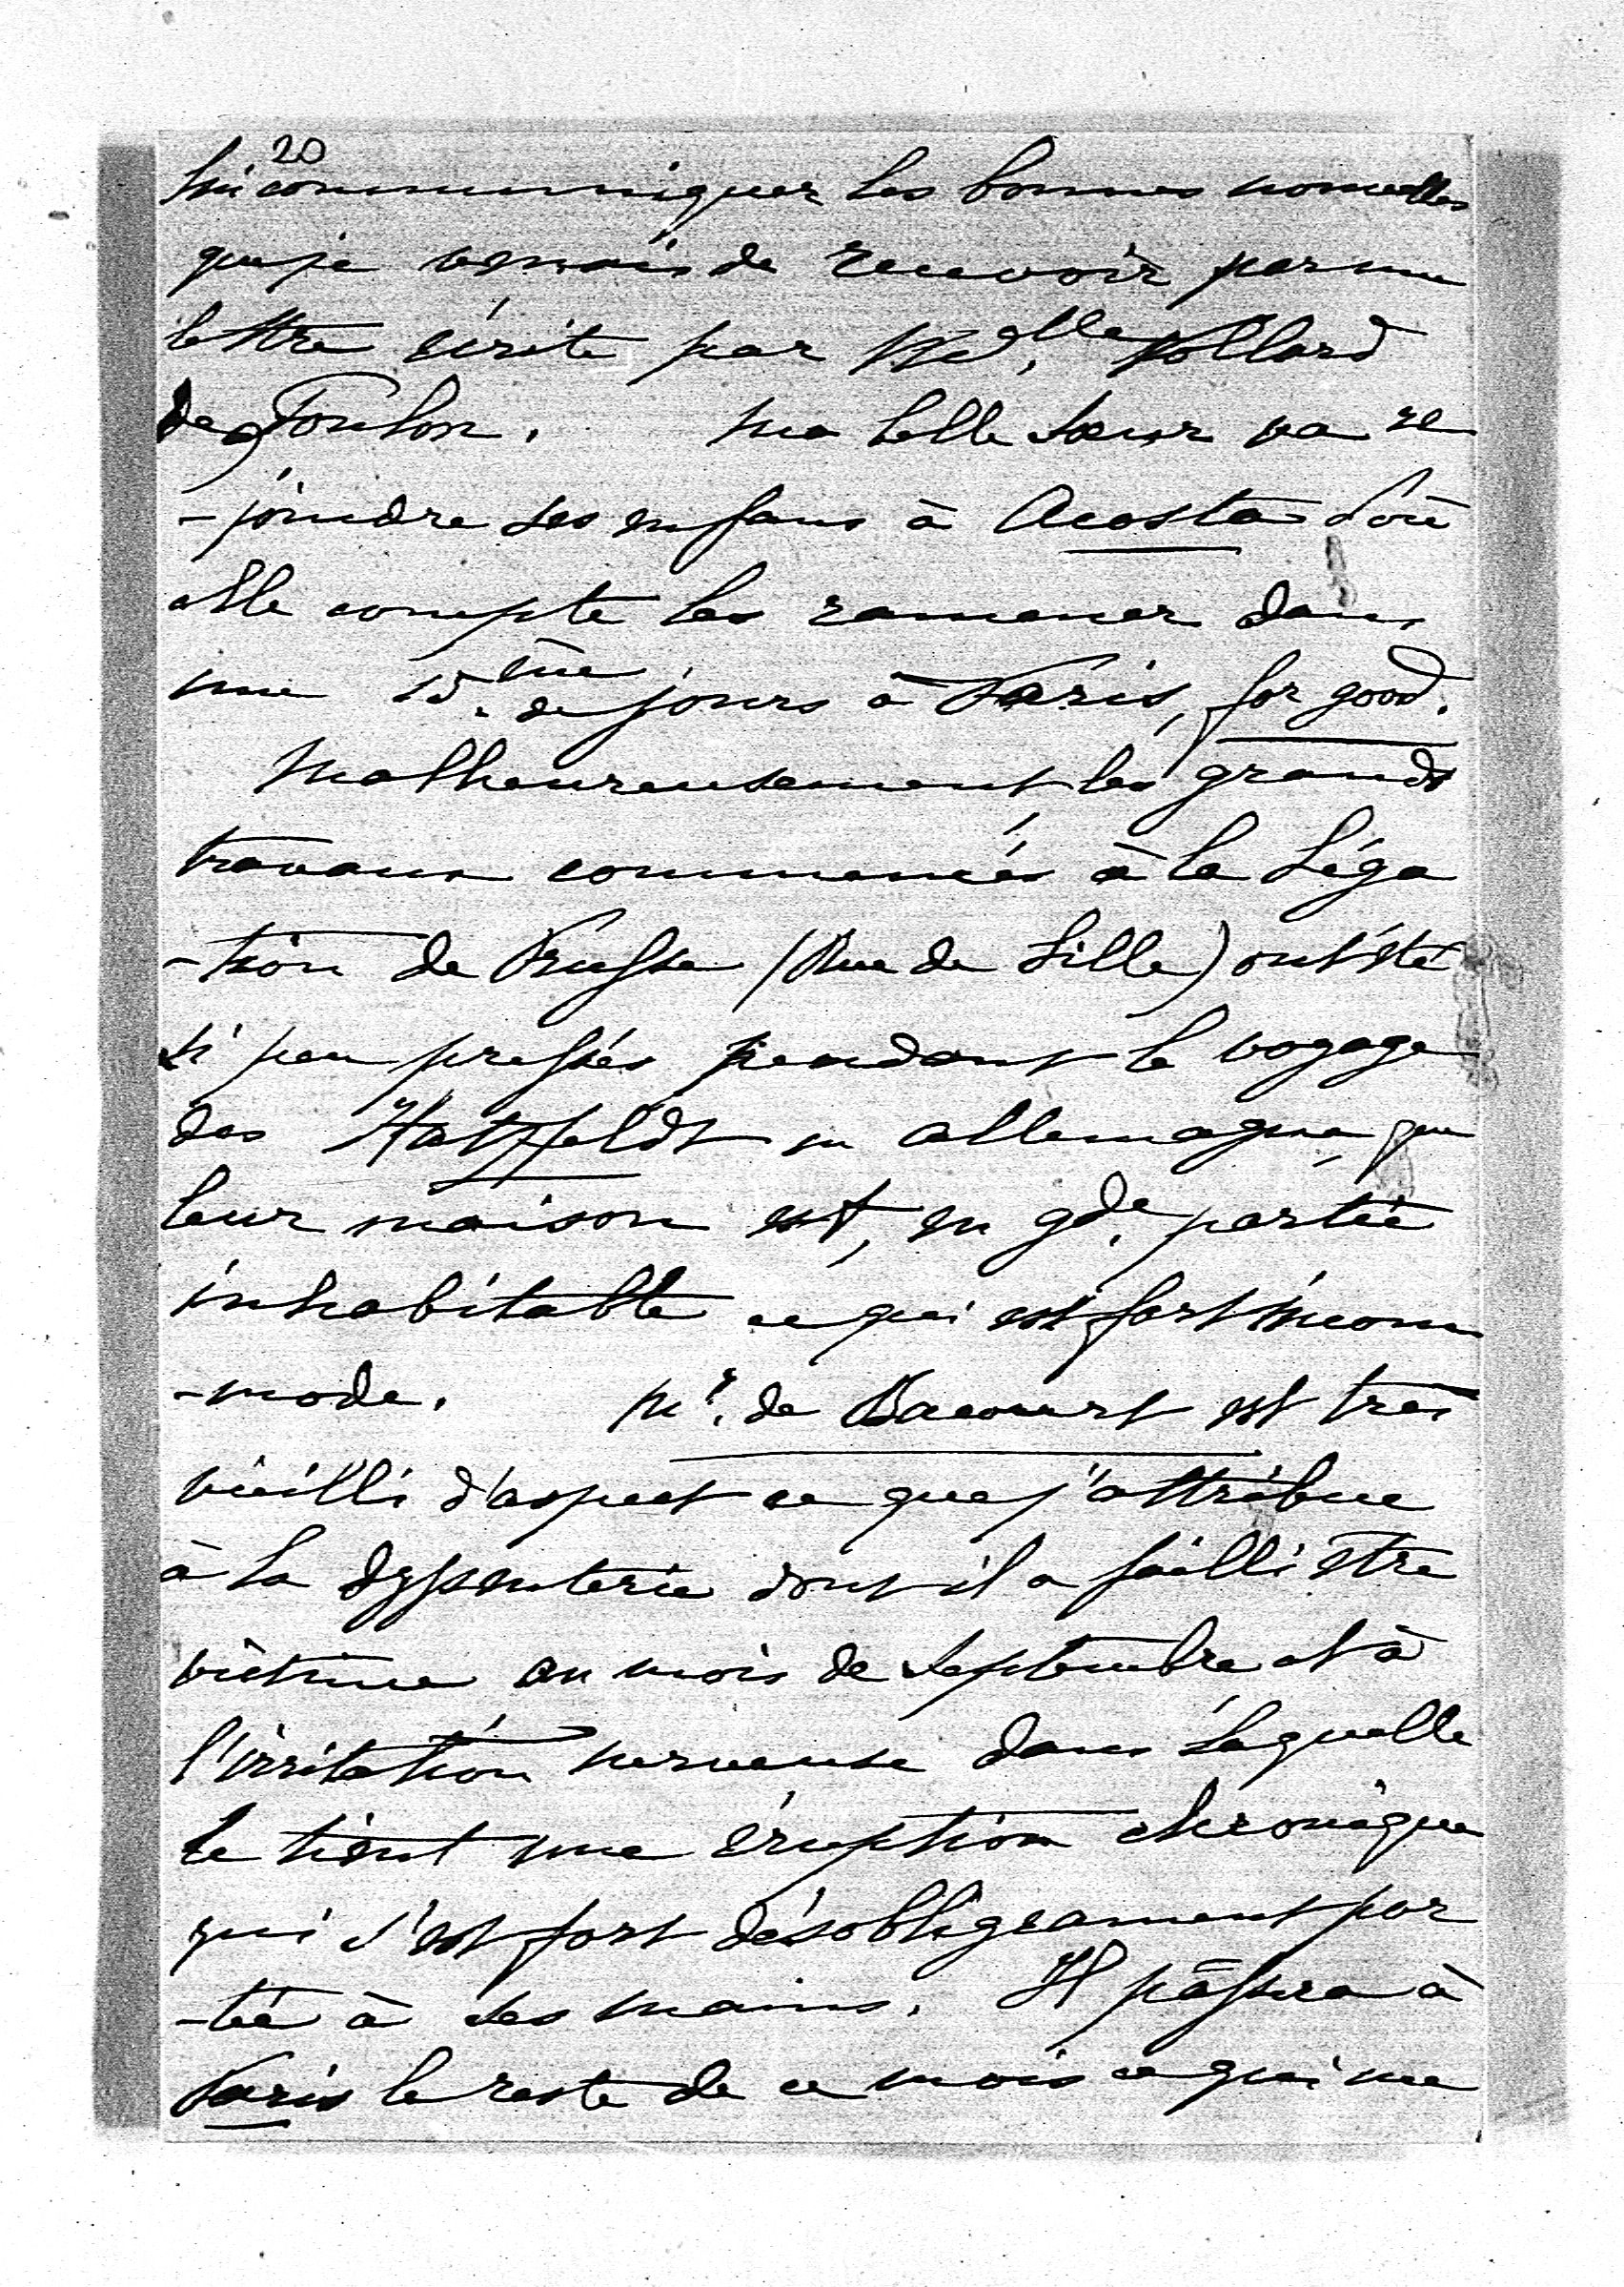 20
lui communiquer les bonnes nouvelles
que je venais de recevoir par une
lettre écrite par Mdlle. Vollard
de Toulon. Ma belle Sœur va re
-joindre ses enfans à Acosta d'où
elle compte les ramener dans
une 15.ne de jours à Paris, for good.
Malheureusement les grands
travaux commencés à la Léga
-tion de Prusse (Rue de Lille) ont été
si peu pressés pendant le voyage
des Hatzfeldt en Allemagne, que
leur maison est, en gde. partie
inhabitable ce qui est fort incom
-mode. Mr. de Bacourt est très
vieilli d'aspect ce que j'attribue
à la dyssenterie dont il a failli être
victime au mois de Septembre et à
l'irritation nerveuse dans laquelle
le tient une éruption chronique
qui s'est fort désobligeament por
-tée à ses mains. Il passera à
Paris le reste de ce mois ce qui me